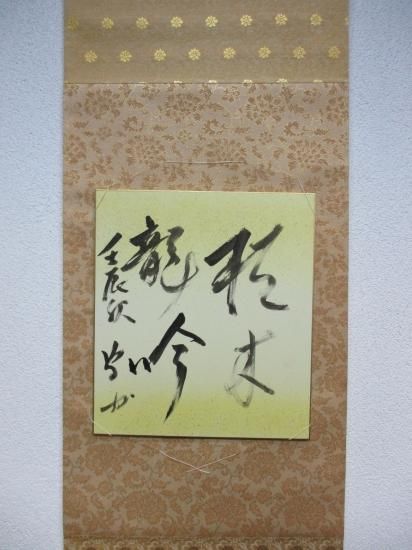 枯木
龍吟
壬辰秋